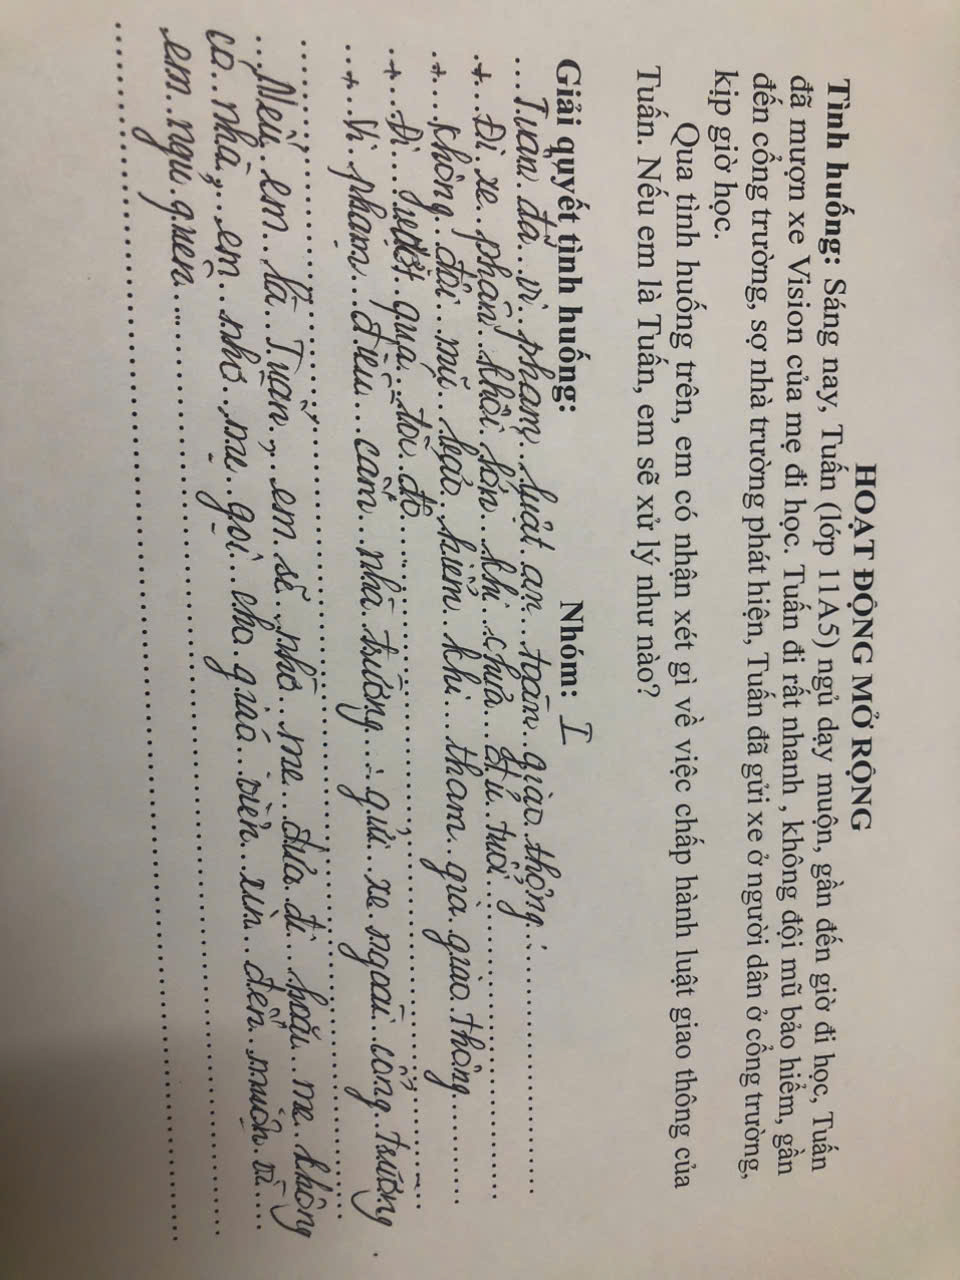 HOẠT ĐỘNG MỞ RỘNG
Tình huống: Sáng nay, Tuấn (lớp 11A5) ngủ dạy muộn, gần đến giờ đi học, Tuấn
đã mượn xe Vision của mẹ đi học. Tuấn đi rất nhanh , không đội mũ bảo hiểm, gần
đến cổng trường, sợ nhà trường phát hiện, Tuấn đã gửi xe ở người dân ở cổng trường,
kịp giờ học.
Qua tình huống trên, em có nhận xét gì về việc chấp hành luật giao thông của
Tuấn. Nếu em là Tuấn, em sẽ xử lý như nào?
Giải quyết tình huống: Nhóm: I
Tuấn đã vi phạm luật an toàn giao thông :
+ Đi xe phân khối lớn khi chưa đủ tuổi
+ không đội mũ bảo hiểm khi tham gia giao thông
+ Đi vượt quá tốc độ
+ Vi phạm điều cấm nhà trường : gửi xe ngoài cổng trường .
Nếu em là Tuấn, em sẽ nhờ mẹ đưa đi hoặc mẹ không
có nhà, em nhờ mẹ gọi cho giáo viên xin đến muộn vì
em ngủ quên